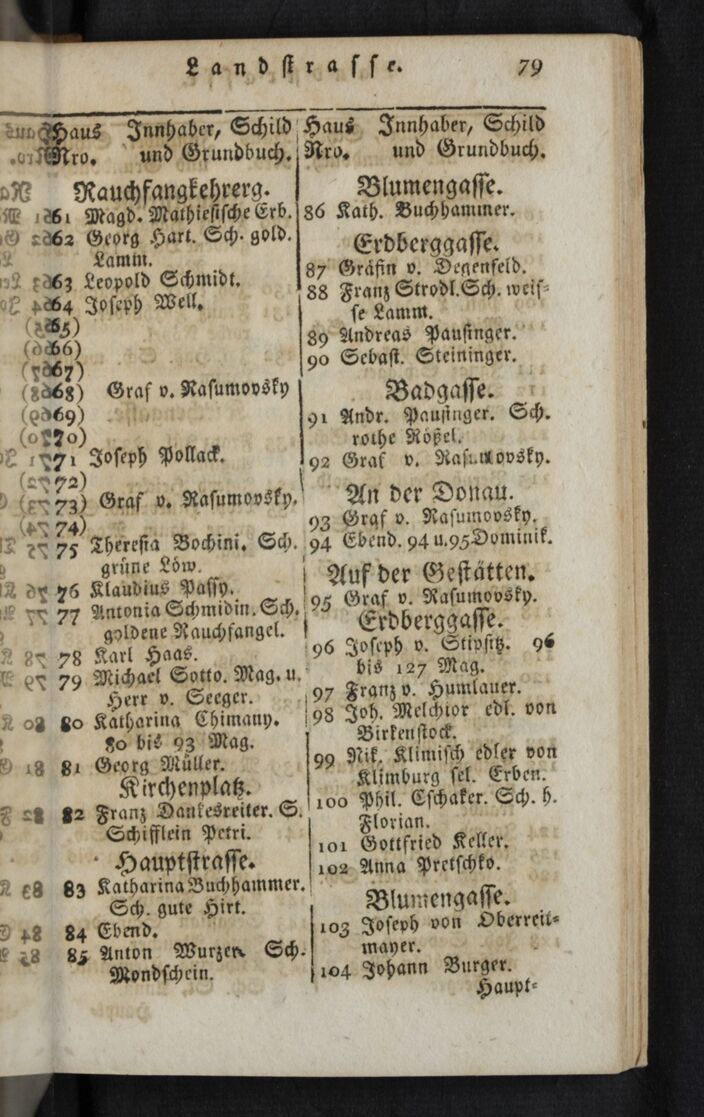 Landstrasse. 79
Haus Innhaber, Schild
Nro. und Grundbuch.
Rauchfangkehrerg.
61 Magd. Mathiesische Erb.
62 Georg Hart. Sch. gold.
Lamm.
63 Leopold Schmidt.
64 Joseph Well.
65)
66)
67)
68) Graf v. Rasumovsky
69)
70)
71 Joseph Pollack.
72)
73) Graf v. Rasumovsky.
74)
75 Theresia Bochini. Sch.
grüne Löw.
76 Klaudius Passy.
77 Antonia Schmidin. Sch.
goldene Rauchfangel.
78 Karl Haas.
79 Michael Sotto. Mag. u.
Herr v. Seeger.
80 Katharina Chimany.
80 bis 93 Mag.
81 Georg Müller.
Kirchenplatz.
82 Franz Dankesreiter. S.
Schifflein Petri.
Hauptstrasse.
83 Katharina Buchhammer.
Sch. gute Hirt.
84 Ebend.
85 Anton Wurzer. Sch.
Mondschein.
Haus Innhaber, Schild
Nro. und Grundbuch.
Blumengasse.
86 Kath. Buchhammer.
Erdberggasse.
87 Gräfin v. Degenfeld.
88 Franz Strodl. Sch. weis=
se Lamm.
89 Andreas Pausinger.
90 Sebast. Steininger.
Badgasse.
91 Andr. Pausinger. Sch.
rothe Rößel.
92 Graf v. Rasumovsky.
An der Donau.
93 Graf v. Rasumovsky.
94 Ebend. 94 u. 95 Dominik.
Auf der Gestätten.
95 Graf v. Rasumovsky.
Erdberggasse.
96 Joseph v. Stipsitz. 96
bis 127 Mag.
97 Franz v. Humlauer.
98 Joh. Melchior edl. von
Birkenstock.
99 Nik. Klimisch edler von
Klimburg sel. Erben.
100 Phil. Eschaker. Sch. h.
Florian.
101 Gottfried Keller.
102 Anna Pretschko.
Blumengasse.
103 Joseph von Oberreit=
mayer.
104 Johann Burger.
Haupt=